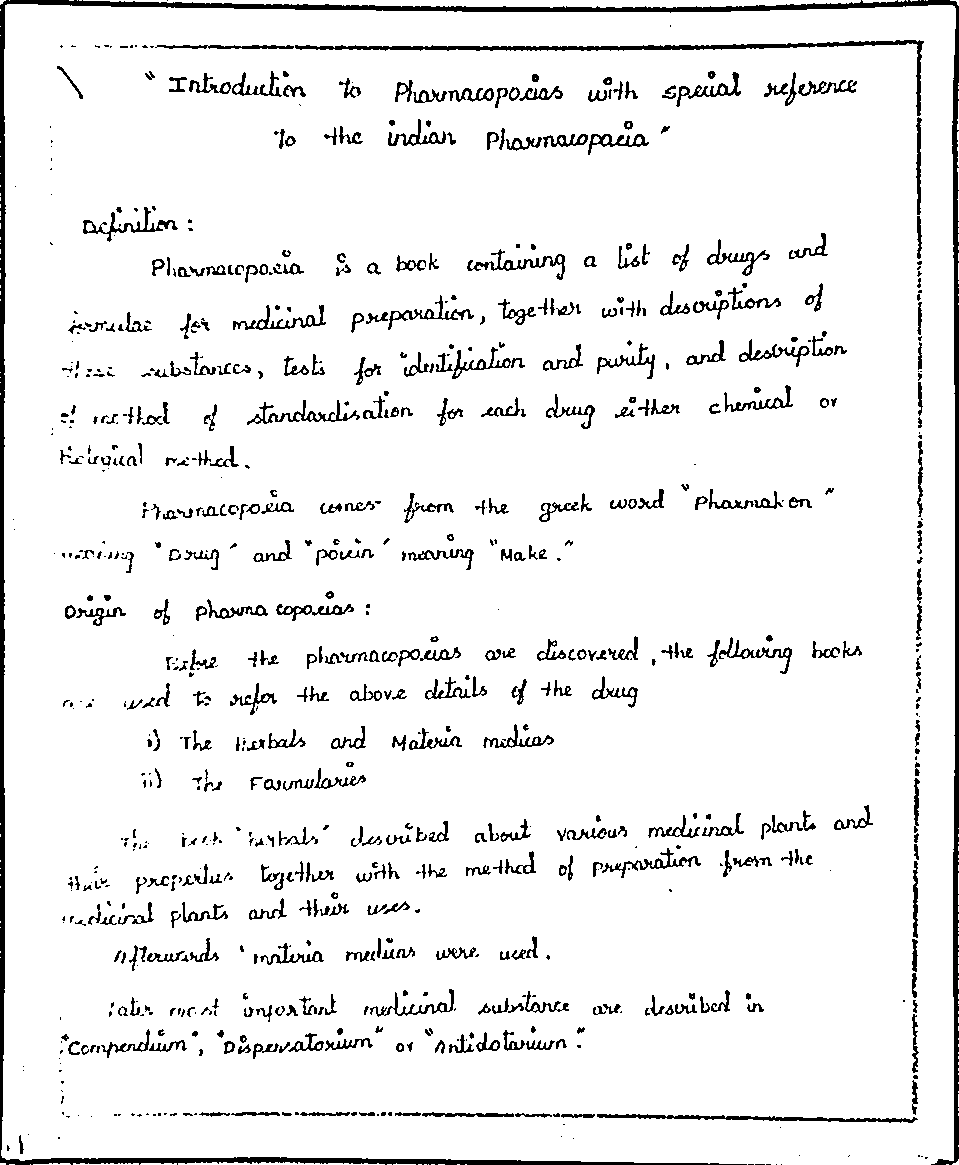 " Introduction to Pharmacopoeias with special reference
To the indian Pharmacopoeia "
Definition :
Pharmacopoeia is a book containing a list of drugs and
formulae for medicinal preparation, together with descriptions of
these substances, tests for identification and purity, and description
of method of standardisation for each drug either chemical or
Biological method.
Pharmacopoeia comes from the greek word "Pharmakon"
meaning "Drug" and "poiein" meaning "Make."
Origin of pharma copoeias :
Before the pharmacopoeias are discovered, the following books
are used to refer the above details of the drug
i) The Herbals and Materia medicas
ii) The Formularies
The book "herbals" described about various medicinal plants and
their properties together with the method of preparation from the
medicinal plants and their uses.
Afterwards 'materia medicas were used.
Later most important medicinal substance are described in
"Compendium", "Dispensatorium" or "Antidotarium."